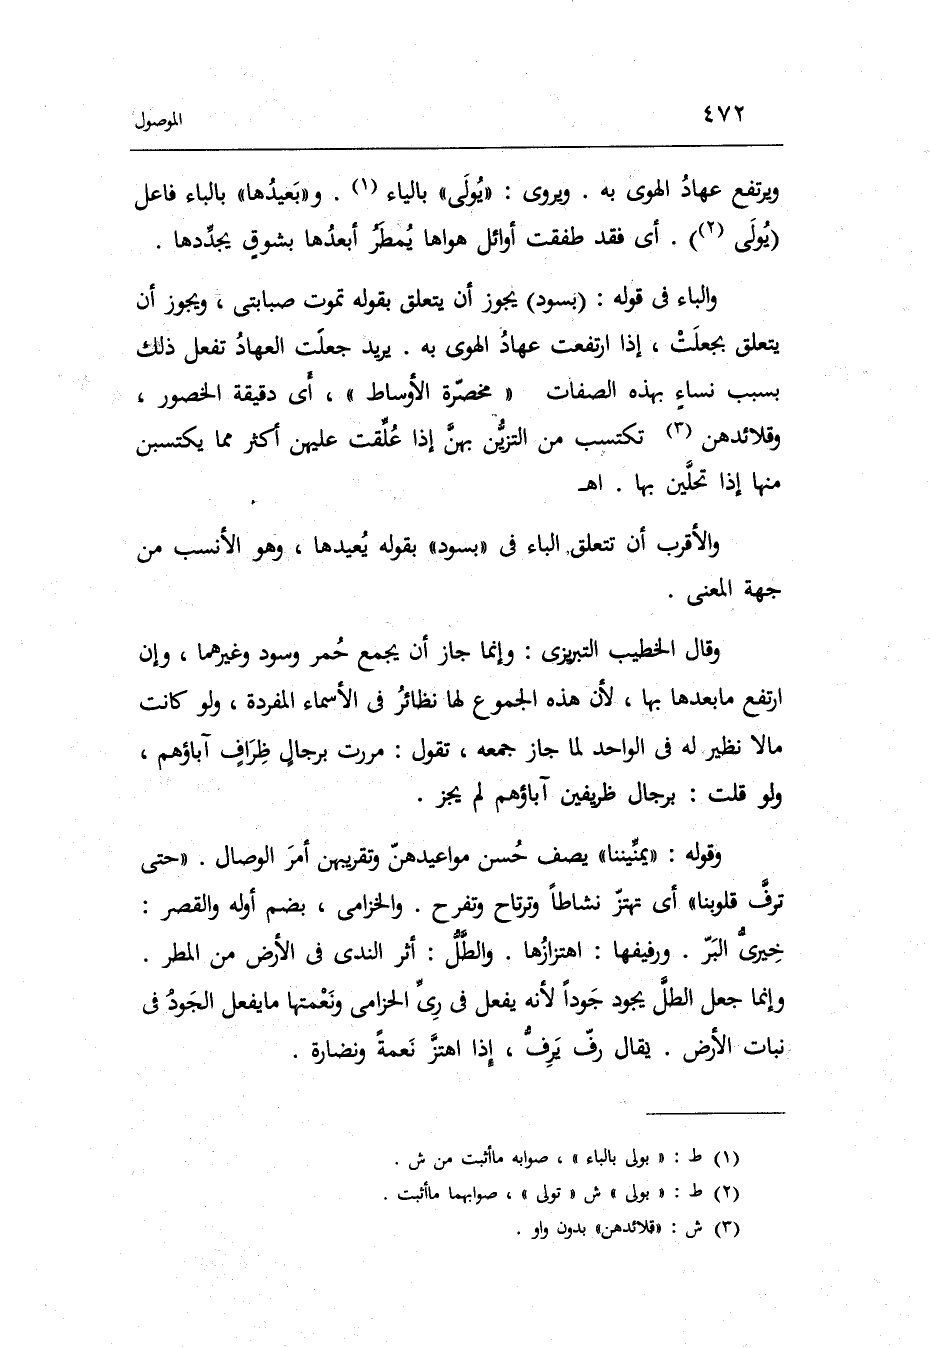 ٤٧٢
الموصول
ويرتفع عهادُ الهوى به . ويروى : «يُولَى» بالياء (١) . و«بَعيدُها» بالباء فاعل
(يُولَى (٢)) . أى فقد طفقت أوائل هواها يُمطَرُ أبعدُها بشوقٍ يجدِّدها .
والباء فى قوله : (بسود) يجوز أن يتعلق بقوله تموت صبابتى ، ويجوز أن
يتعلق بجعلَتْ ، إذا ارتفعت عهادُ الهوى به . يريد جعلَت العهادُ تفعل ذلك
بسبب نساءٍ بهذه الصفات « مخصّرة الأوساط » ، أى دقيقة الخصور ،
وقلائدهن (٣) تكتسب من التزيُّن بهنَّ إذا عُلِّقت عليهن أكثر مما يكتسبن
منها إذا تحلَّين بها . اهـ
والأقرب أن تتعلق الباء فى «بسود» بقوله يُعيدها ، وهو الأنسب من
جهة المعنى .
وقال الخطيب التبريزى : وإنما جاز أن يجمع حُمر وسود وغيرهما ، وإن
ارتفع مابعدها بها ، لأن هذه الجموع لها نظائرُ فى الأسماء المفردة ، ولو كانت
مالا نظير له فى الواحد لما جاز جمعه ، تقول : مررت برجالٍ ظِرَافٍ آباؤهم ،
ولو قلت : برجال ظريفين آباؤهم لم يجز .
وقوله : «يمنِّيننا» يصف حُسن مواعيدهنّ وتقريبهن أمرَ الوصال . «حتى
ترفَّ قلوبنا» أى تهتزّ نشاطاً وترتاح وتفرح . والخزامى ، بضم أوله والقصر :
خِيرىُّ البَرّ . ورفيفها : اهتزازُها . والطَّلُّ : أثر الندى فى الأرض من المطر .
وإنما جعل الطلَّ يجود جَوداً لأنه يفعل فى رِىِّ الخزامى ونَعْمتها مايفعل الجَودُ فى
نبات الأرض . يقال رفّ يَرِفُّ ، إذا اهتزَّ نَعمةً ونضارة .
(١) ط : « بولى بالباء » ، صوابه ماأثبت من ش .
(٢) ط : « بولى » ش « تولى » ، صوابهما ماأثبت .
(٣) ش : «قلائدهن» بدون واو .